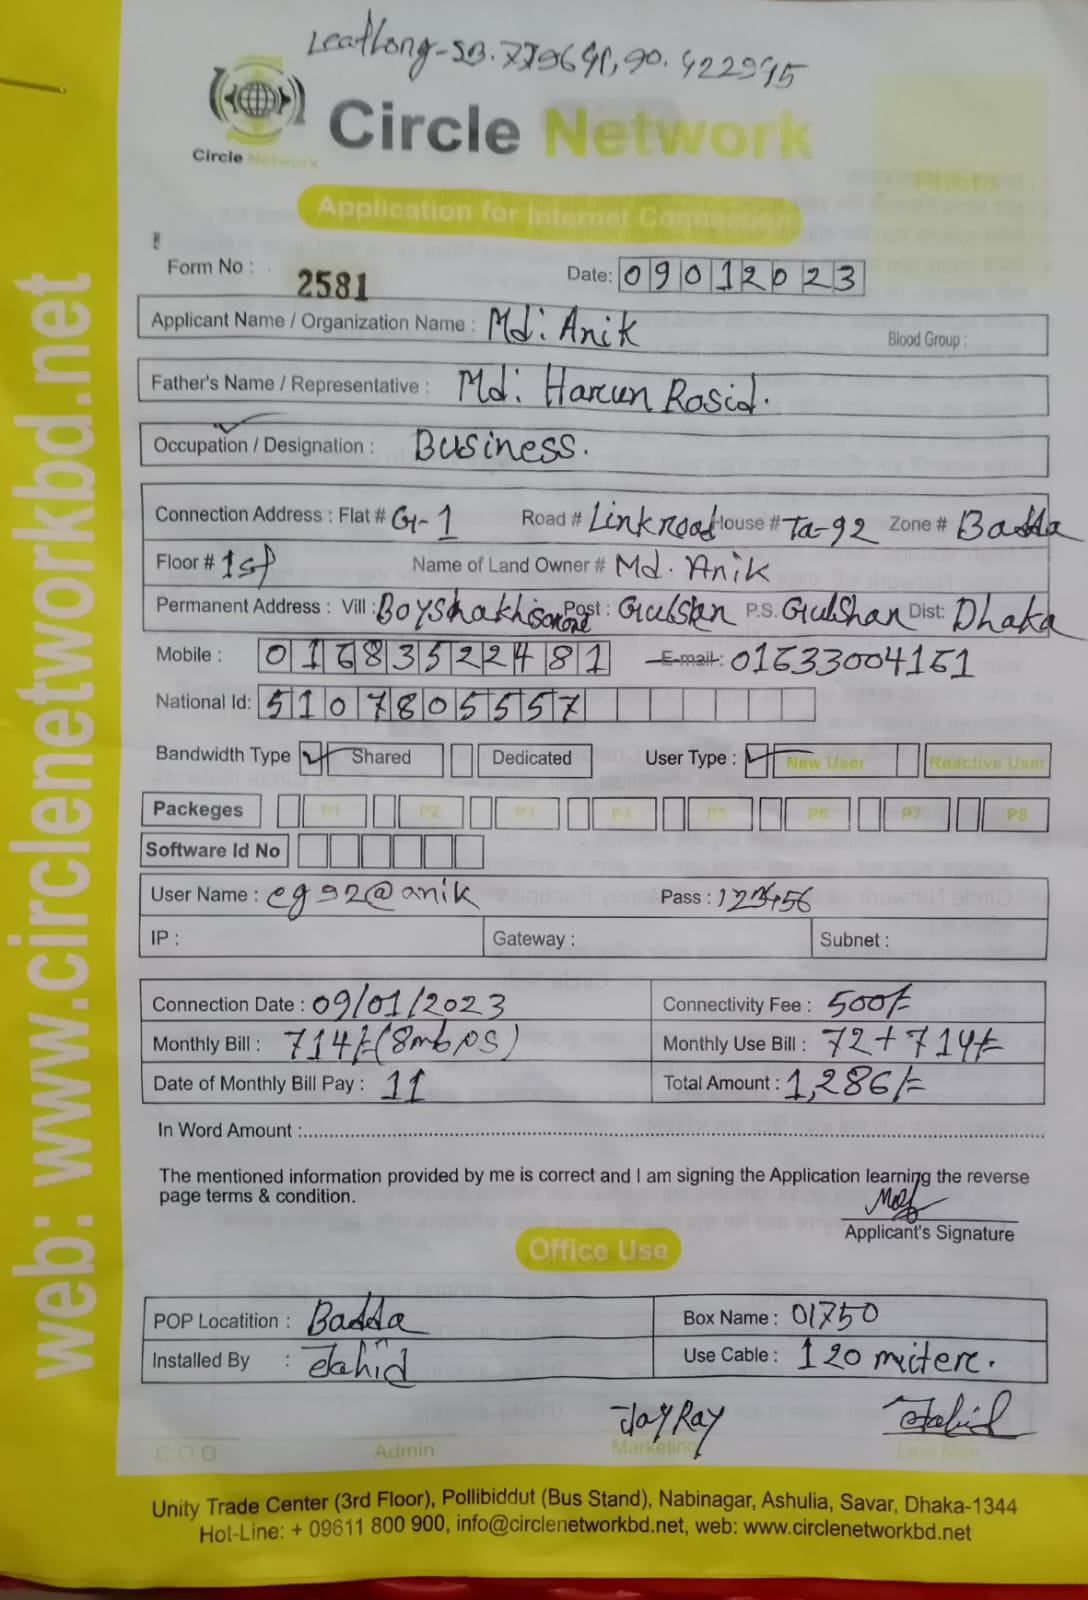 Circle Network
Circle Network
Application for Internet Connection
Photo
Form No : 2581 Date: 09012023
Applicant Name / Organization Name : Md: Anik Blood Group :
Father's Name / Representative : Md: Harun Rosid.
Occupation / Designation : Business.
Connection Address : Flat # G-1 Road # Linkroad House # Ta-92 Zone # Badda
Floor # 1st Name of Land Owner # Md. Anik
Permanent Address : Vill : Boyshakhi Post : Gulshan P.S. Gulshan Dist: Dhaka
Mobile : 01683522481 E-mail : 01633004161
National Id: 5107805557
Bandwidth Type Shared Dedicated User Type : New User Reactive User
Packeges P1 P2 P3 P4 P5 P6 P7 P8
Software Id No
User Name : eg92@anik Pass : 123456
IP : Gateway : Subnet :
Connection Date : 09/01/2023 Connectivity Fee : 500/-
Monthly Bill : 714/-(8mbps) Monthly Use Bill : 72+714/-
Date of Monthly Bill Pay : 11 Total Amount : 1,286/-
In Word Amount :
The mentioned information provided by me is correct and I am signing the Application learning the reverse
page terms & condition.
Applicant's Signature
Office Use
POP Locatition : Badda Box Name : 01750
Installed By : Jahid Use Cable : 120 miter.
Jay Ray Jahid
C.O.O Admin Marketing Line Man
Unity Trade Center (3rd Floor), Pollibiddut (Bus Stand), Nabinagar, Ashulia, Savar, Dhaka-1344
Hot-Line: + 09611 800 900, info@circlenetworkbd.net, web: www.circlenetworkbd.net
web: www.circlenetworkbd.net